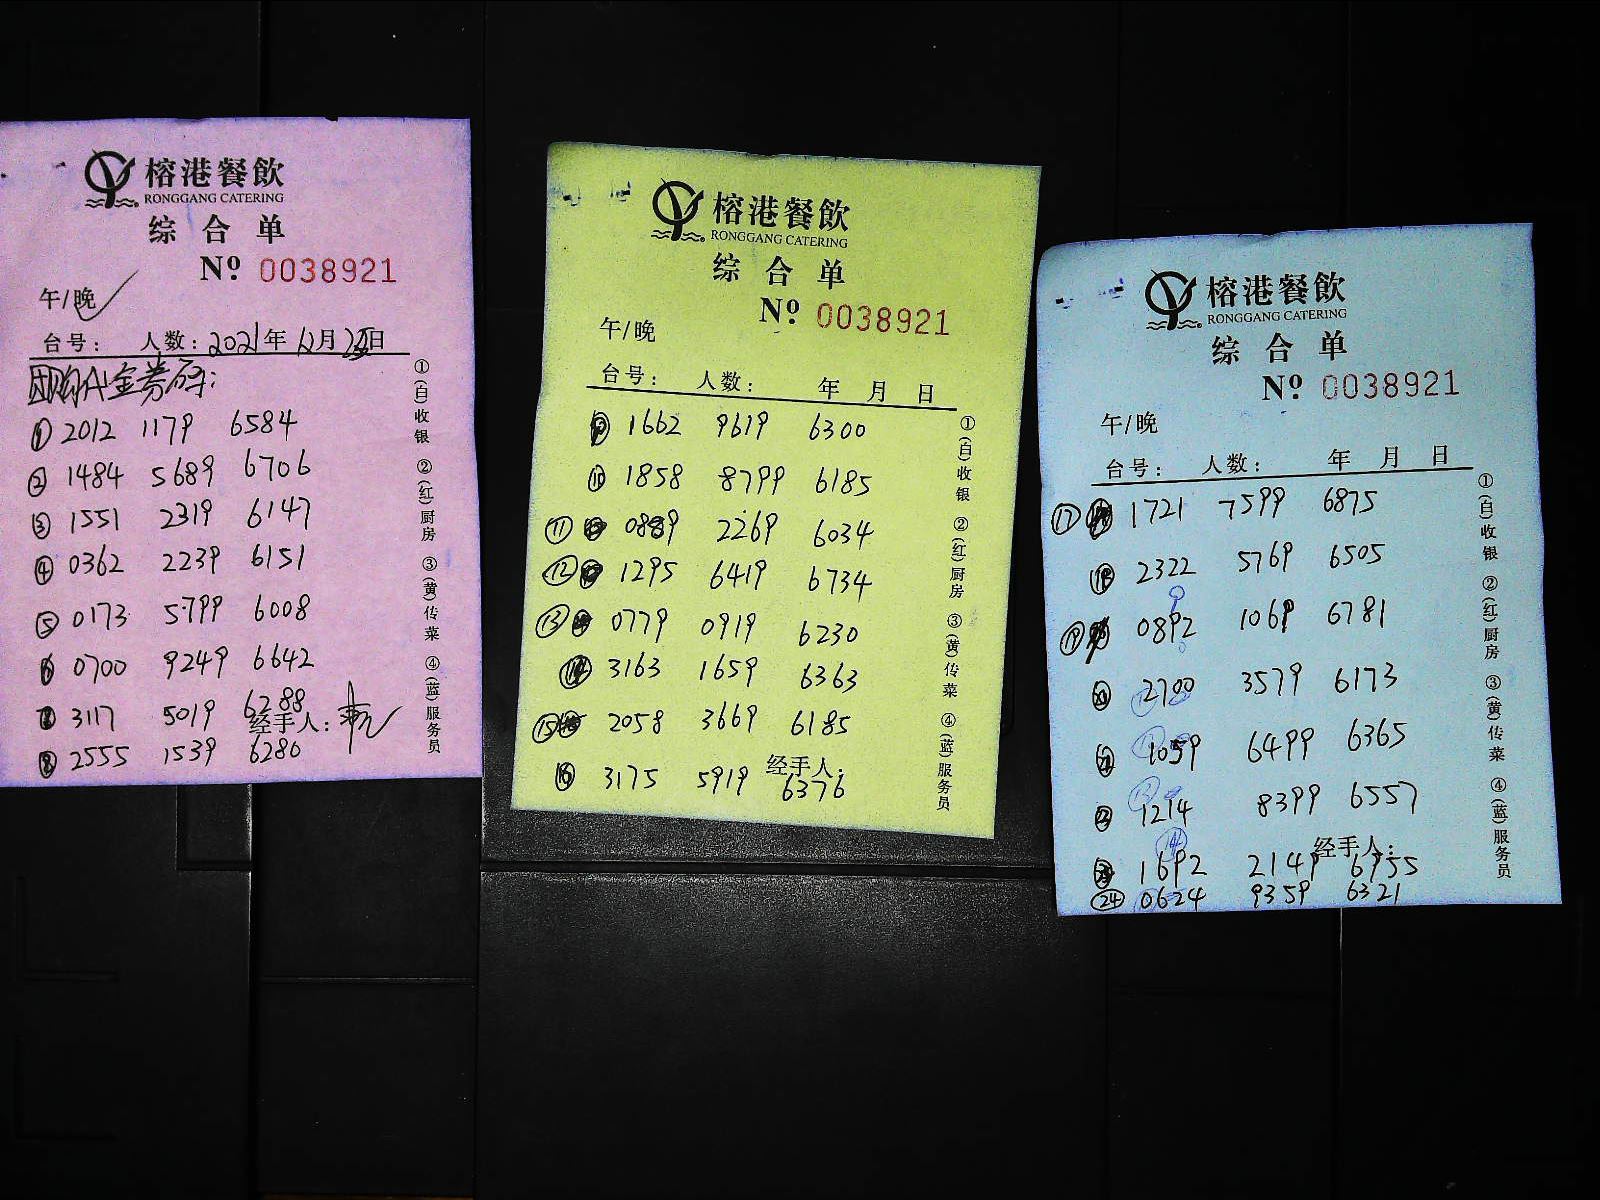 榕港餐飲
RONGGANG CATERING
综合单
Nº 0038921
午/晚
台号： 人数：2021年12月25日
团购代金券码：
① 2012 1179 6584
② 1484 5689 6706
③ 1551 2319 6147
④ 0362 2239 6151
⑤ 0173 5799 6008
⑥ 0700 9249 6642
⑦ 3117 5019 6288
经手人：
⑧ 2555 1539 6280
①(白)收银 ②(红)厨房 ③(黄)传菜 ④(蓝)服务员
榕港餐飲
RONGGANG CATERING
综合单
Nº 0038921
午/晚
台号： 人数： 年 月 日
⑨ 1662 9619 6300
⑩ 1858 8799 6185
⑪ 0889 2269 6034
⑫ 1295 6419 6734
⑬ 0779 0919 6230
⑭ 3163 1659 6363
⑮ 2058 3669 6185
经手人：
⑯ 3175 5919 6376
①(白)收银 ②(红)厨房 ③(黄)传菜 ④(蓝)服务员
榕港餐飲
RONGGANG CATERING
综合单
Nº 0038921
午/晚
台号： 人数： 年 月 日
⑰ 1721 7599 6875
⑱ 2322 5769 6505
⑲ 0892 1069 6781
⑳ 2700 3579 6173
㉑ 1059 6499 6365
㉒ 1214 8399 6557
经手人：
㉓ 1692 2149 6955
㉔ 0624 9359 6321
①(白)收银 ②(红)厨房 ③(黄)传菜 ④(蓝)服务员